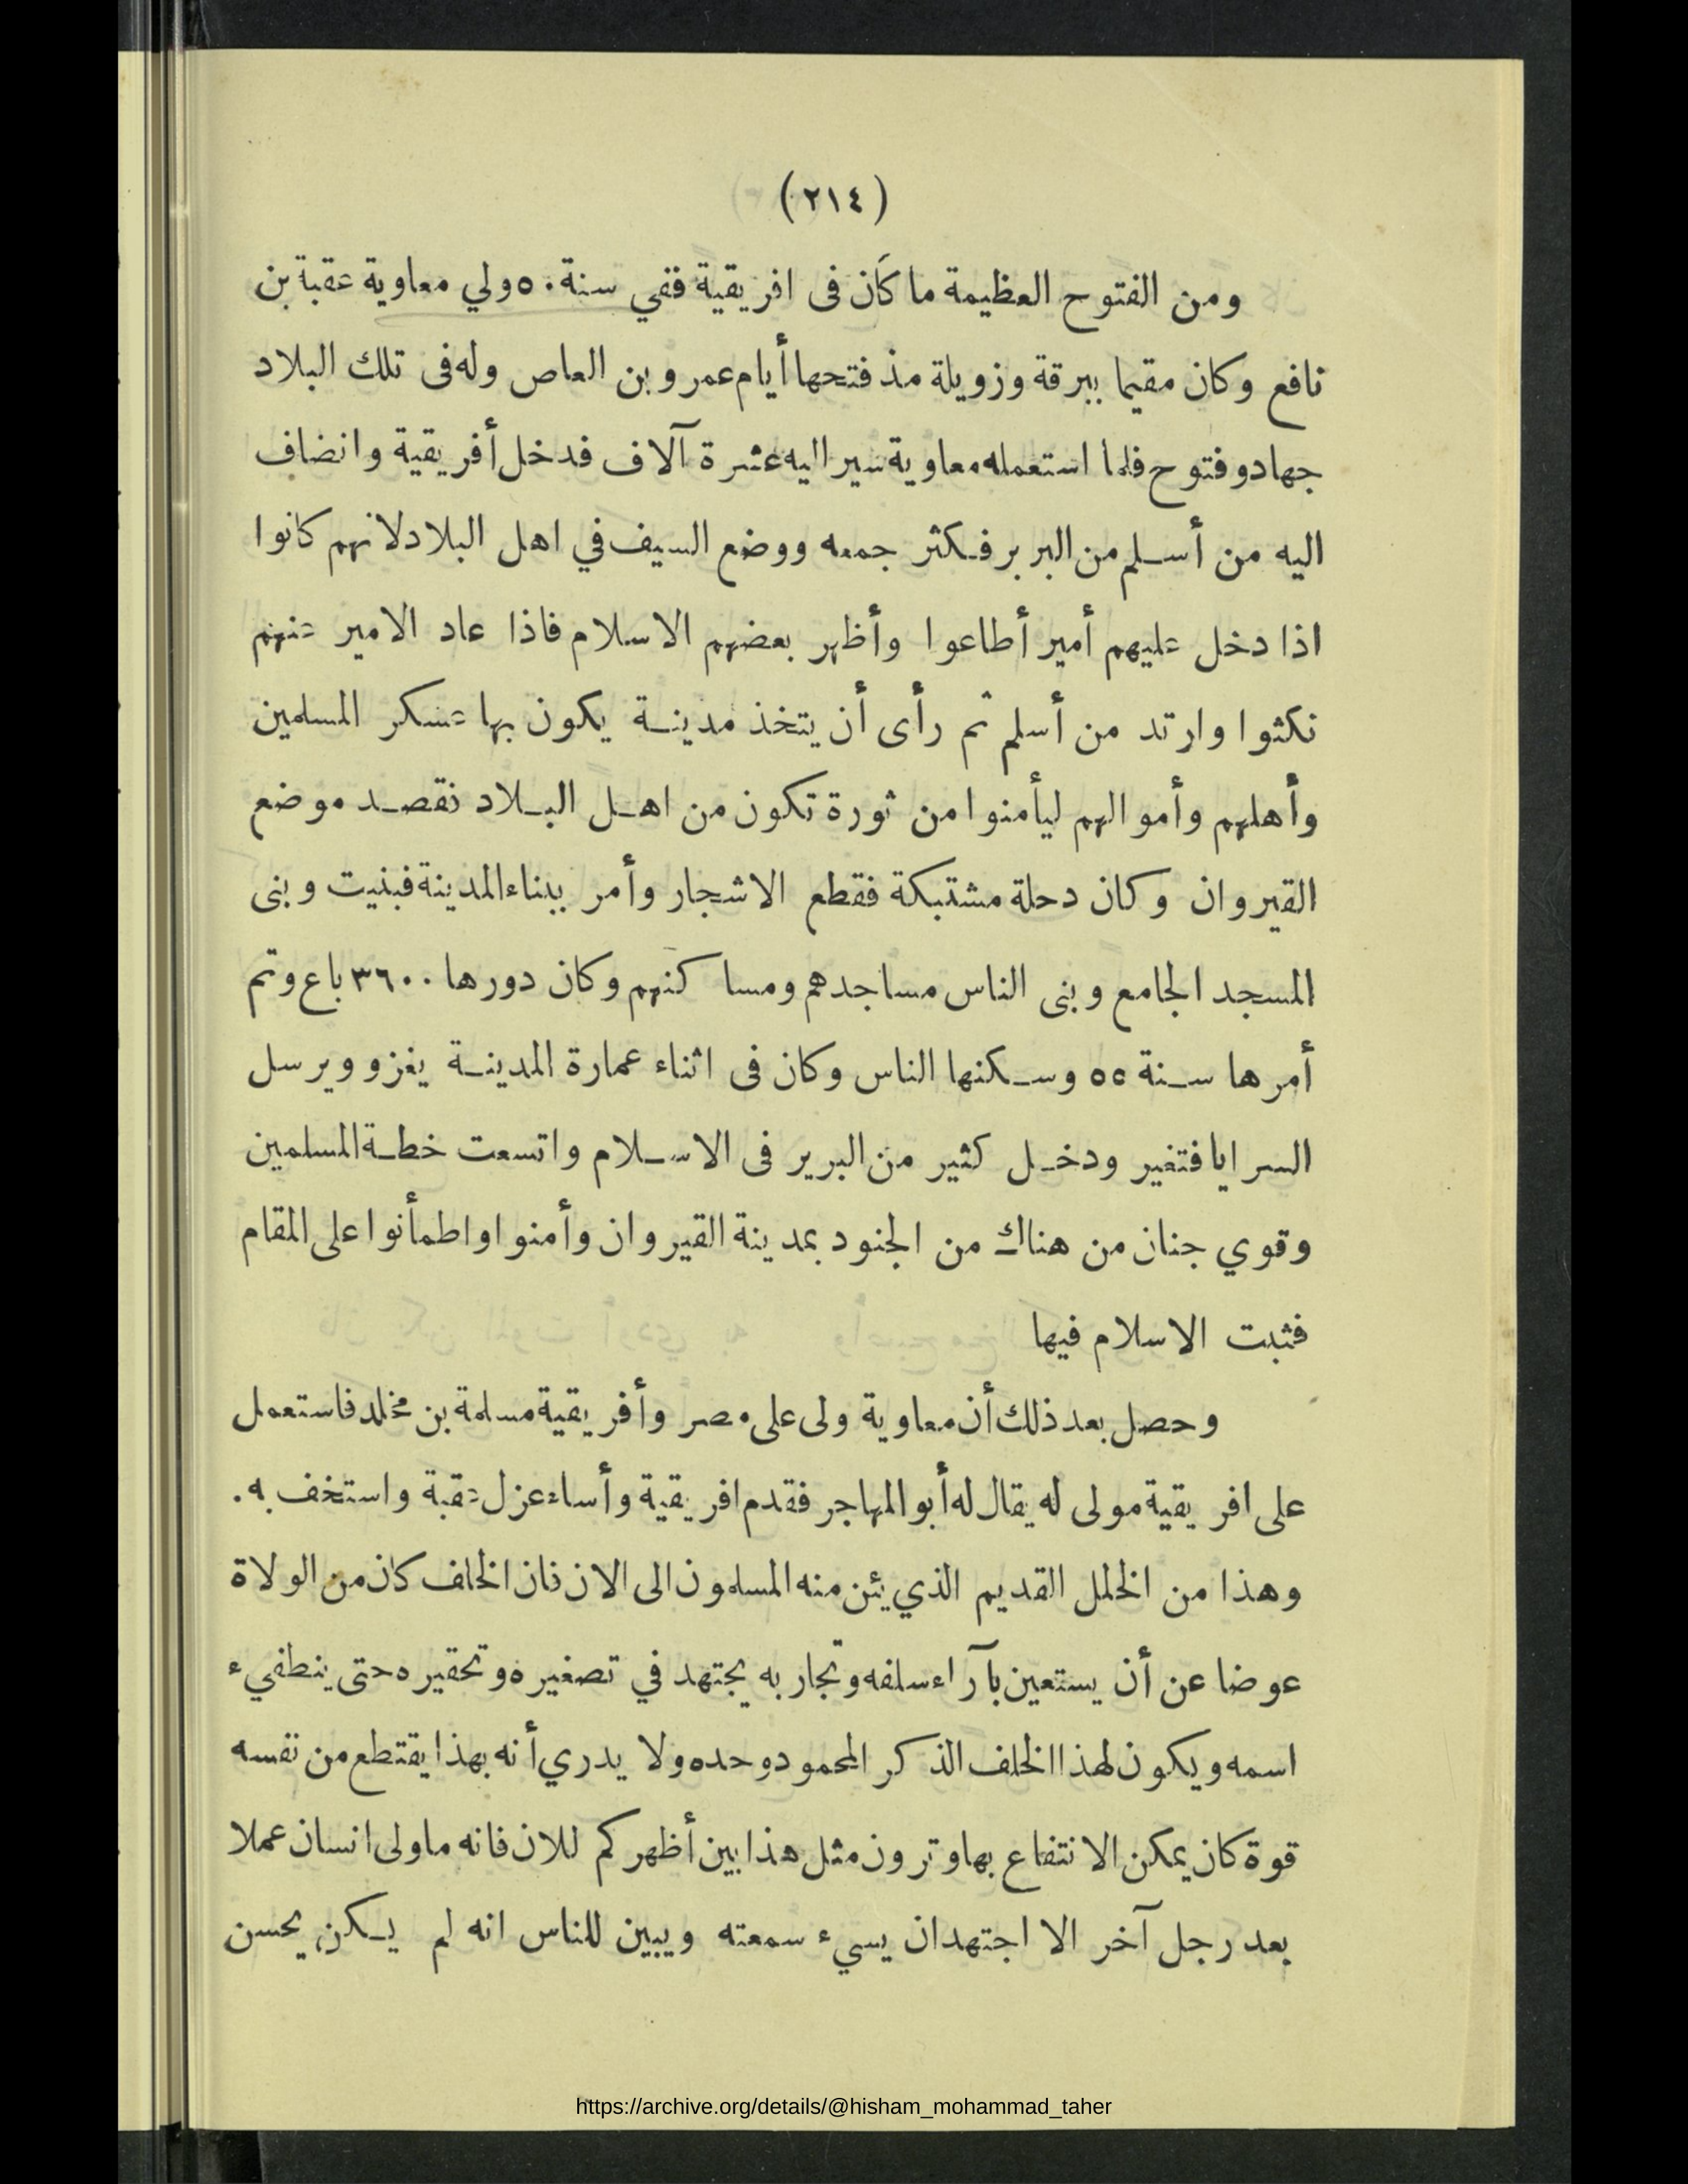 (٢١٤)
ومن الفتوح العظيمة ما كان فى افريقية ففي سنة ٥٠ ولي معاوية عقبة بن
نافع وكان مقيما ببرقة وزويلة مذ فتحها أيام عمرو بن العاص وله فى تلك البلاد
جهاد وفتوح فلما استعمله معاوية سير اليه عشرة آلاف فدخل أفريقية وانضاف
اليه من أسلم من البربر فكثر جمعه ووضع السيف في اهل البلاد لانهم كانوا
اذا دخل عليهم أمير أطاعوا وأظهر بعضهم الاسلام فاذا عاد الامير عنهم
نكثوا وارتد من أسلم ثم رأى أن يتخذ مدينة يكون بها عسكر المسلمين
وأهلهم وأموالهم ليأمنوا من ثورة تكون من اهل البلاد نقصد موضع
القيروان وكان دحلة مشتبكة فقطع الاشجار وأمر ببناء المدينة فبنيت وبنى
المسجد الجامع وبنى الناس مساجدهم ومساكنهم وكان دورها ٣٦٠٠ باع وتم
أمرها سنة ٥٥ وسكنها الناس وكان فى اثناء عمارة المدينة يغزو ويرسل
السرايا فتغير ودخل كثير من البربر فى الاسلام واتسعت خطة المسلمين
وقوي جنان من هناك من الجنود بمدينة القيروان وأمنوا واطمأنوا على المقام
فثبت الاسلام فيها
وحصل بعد ذلك أن معاوية ولى على مصر وأفريقية مسلمة بن مخلد فاستعمل
على افريقية مولى له يقال له أبو المهاجر فقدم افريقية وأساء عزل عقبة واستخف به.
وهذا من الخلل القديم الذي يئن منه المسلمون الى الان فان الخلف كان من الولاة
عوضا عن أن يستعين بآراء سلفه وتجاربه يجتهد في تصغيره وتحقيره حتى ينطفيء
اسمه ويكون لهذا الخلف الذكر المحمود وحده ولا يدري أنه بهذا يقتطع من نفسه
قوة كان يمكن الانتفاع بها وترون مثل هذا بين أظهركم للان فانه ما ولى انسان عملا
بعد رجل آخر الا اجتهد ان يسيء سمعته ويبين للناس انه لم يكن يحسن
https://archive.org/details/@hisham_mohammad_taher